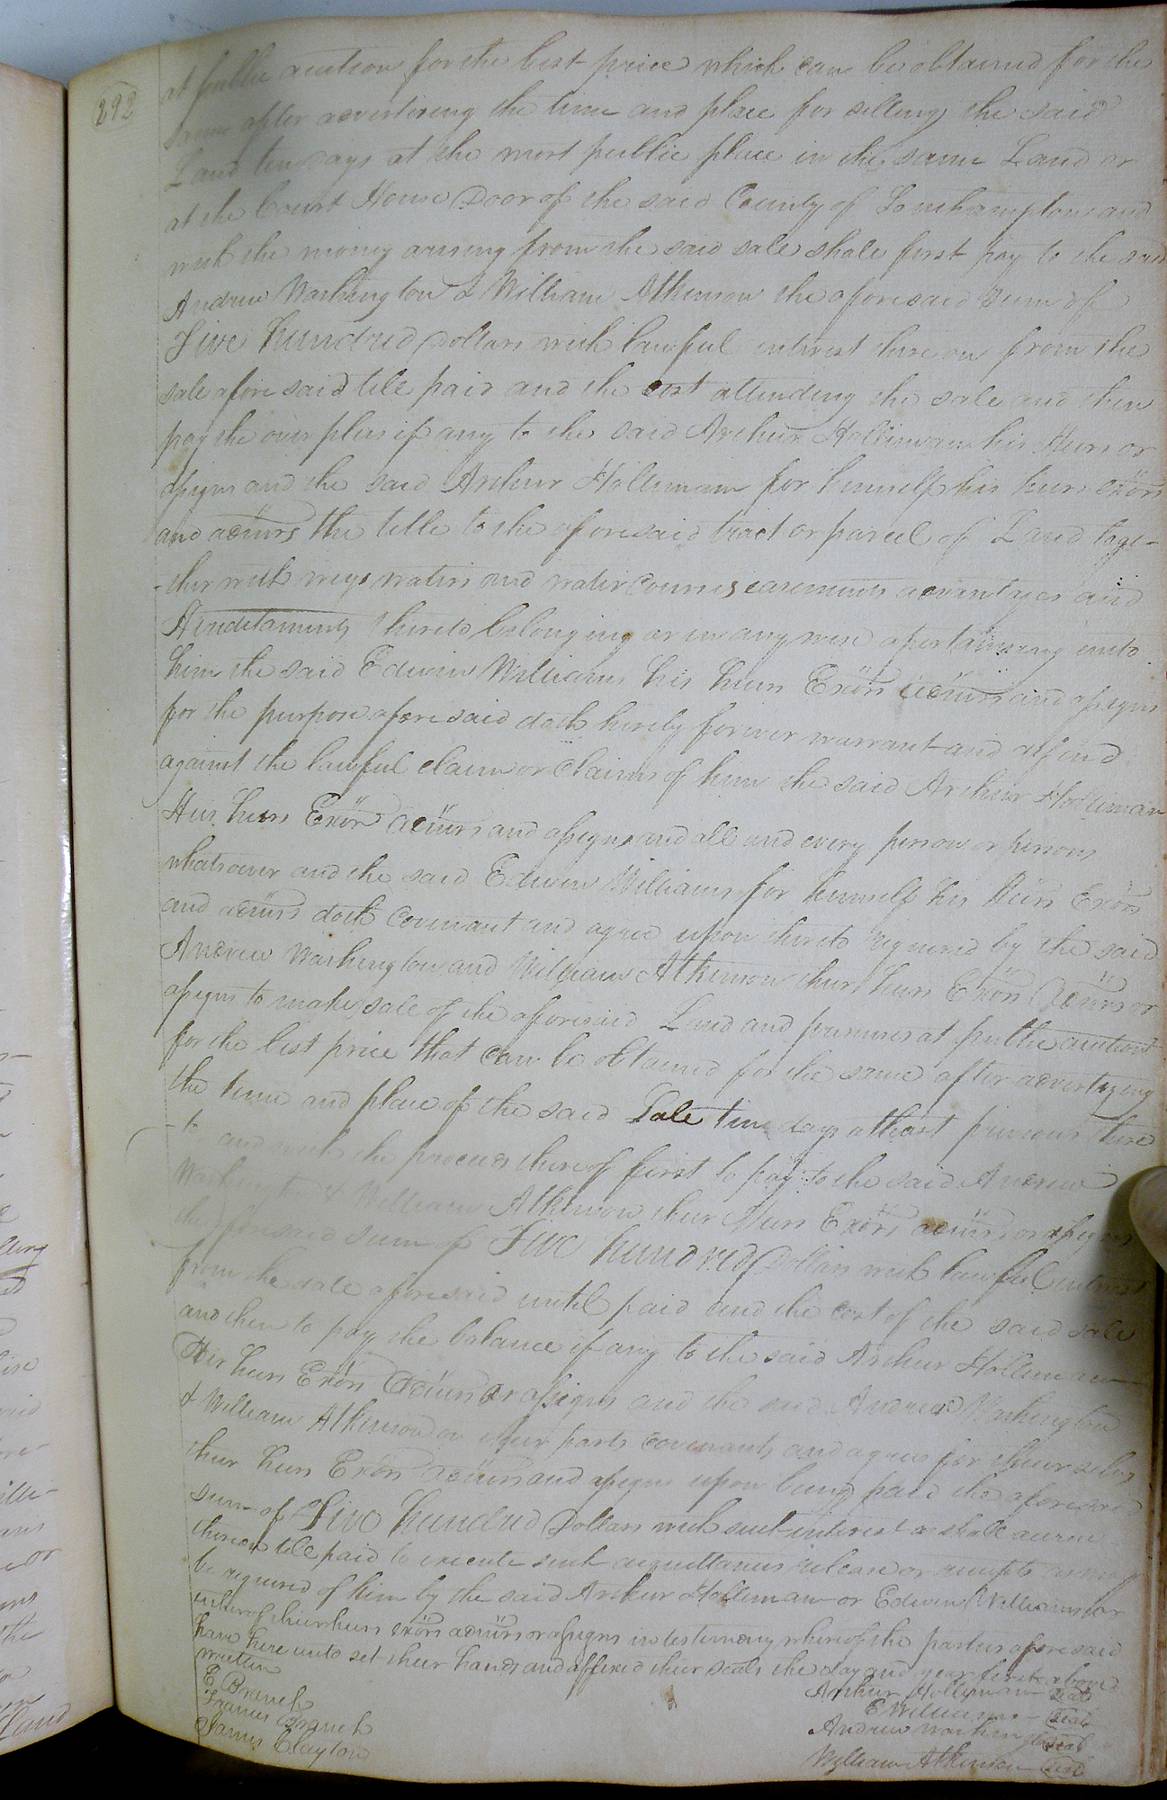 292
at public auction for the best price which can be obtained for the
same after advertising the time and place for selling the said
Land ten days at the most public place in the same Land or
at the Court House Door of the said County of Southampton and
with the money arising from the said sale shale first pay to the said
Andrew Washington & William Atkinson the aforesaid sum of
Five hundred Dollars with lawful interest there on from the
sale afore said tile paid and the cost attending the sale and then
pay the over plus if any to the said Arthur Holliman his Heirs or
assigns and the said Arthur Holliman for himself his heirs exōrs
and admrs the title to the aforesaid tract or parcel of Land toge-
-ther with ways waters and water Courses easements advantages and
Hereditaments thereto belonging or in any wise apertaining unto
him the said Edwin Williams his heirs Exōrs admrs and assigns
for the purpose afore said doth hereby forever warrant and defend
against the lawful claim or Claims of him the said Arthur Holliman
His heirs Exōrs admrs and assigns and all and every person or persons
whatsoever and the said Edwin Williams for himself his Heirs Exōrs
and admrs doth Covenant and agree upon thereto required by the said
Andrew Washington and William Atkinson their heirs Exōrs Admrs or
assigns to make sale of the aforesaid Land and premises at public auction
for the best price that can be obtained for the same after advertizing
the time and place of the said Sale ten days atleast previous there
-to and with the proceeds thereof first to pay to the said Andrew
Washington & William Atkinson their Heirs Exōrs admrs or assigns
the aforesaid sum of Five hundred Dollars with lawful interest
from the sale aforesaid until paid and the cost of the said sale
and then to pay the balance if any to the said Arthur Holliman
His heirs Exōrs Admrs or assigns and the said Andrew Washington
& William Atkinson on their parts covenants and agrees for themselves
their heirs Exōrs admrs and assigns upon being paid the aforesaid
sum of Five hundred Dollars with such interest as shall accrue
thereon tile paid to execute such acquittances release or receipts as may
be required of him by the said Arthur Holliman or Edwin Williams or
either of their heirs exōrs admrs or assigns in testimony whereof the parties aforesaid
have here unto set their hands and affixed their seals the day and year first above
written
Arthur Holliman Seal
E Branch
E Williams Seal
James Branch
Andrew Washington Seal
James Clayton
William Atkinson Seal